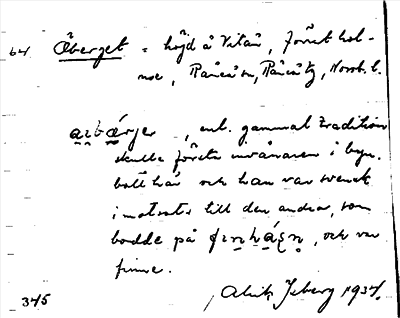 64 Åberget = höjd å Vitån, förut hol-
me, Råneån, Råneå tg, Norrb. l.
, enl. gammal tradition
skulle förste invånaren i byn.
bott här och han var svensk
i motsats till den andra, som
bodde på , och var
finne.
345 Alrik Isberg 1937.